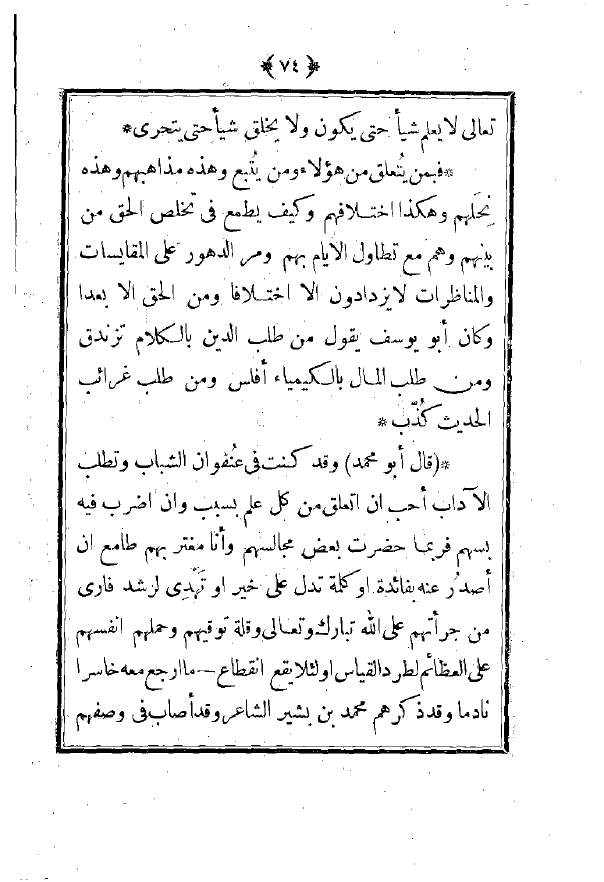 ﴿ ٧٤ ﴾
تعالى لا يعلم شيأ حتى يكون ولا يخلق شيأ حتى يتحرى*
*فبمن يُتعلق من هؤلاء ومن يُتبع وهذه مذاهبهم وهذه
نِحَلهم وهكذا اختلافهم وكيف يطمع فى تخلص الحق من
بينهم وهم مع تطاول الايام بهم ومر الدهور على المقايسات
والمناظرات لا يزدادون الا اختلافا ومن الحق الا بعدا
وكان أبو يوسف يقول من طلب الدين بالكلام تزندق
ومن طلب المال بالكيمياء أفلس ومن طلب غرائب
الحديث كُذّب*
*(قال أبو محمد) وقد كنت فى عُنفوان الشباب وتطلب
الآداب أحب ان اتعلق من كل علم بسبب وان اضرب فيه
بسهم فربما حضرت بعض مجالسهم وأنا مغتر بهم طامع ان
أصدُر عنه بفائدة او كلمة تدل على خير او تَهْدِى لرشد فارى
من جرأتهم على الله تبارك وتعالى وقلة توقيهم وحملهم انفسهم
على العظائم لطرد القياس او لئلا يقع انقطاع — ما ارجع معه خاسرا
نادما وقد ذكرهم محمد بن بشير الشاعر وقد أصاب فى وصفهم